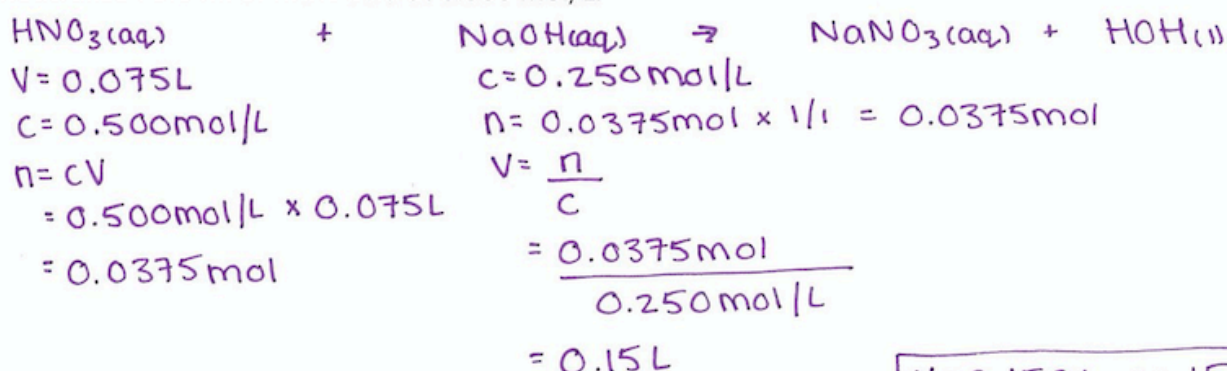 HNO₃(aq) + NaOH(aq) → NaNO₃(aq) + HOH(l)
V = 0.075L
C = 0.500mol/L
n = CV
= 0.500mol/L × 0.075L
= 0.0375mol
C = 0.250mol/L
n = 0.0375mol × 1/1 = 0.0375mol
V = n
C
= 0.0375mol
0.250mol/L
= 0.15L